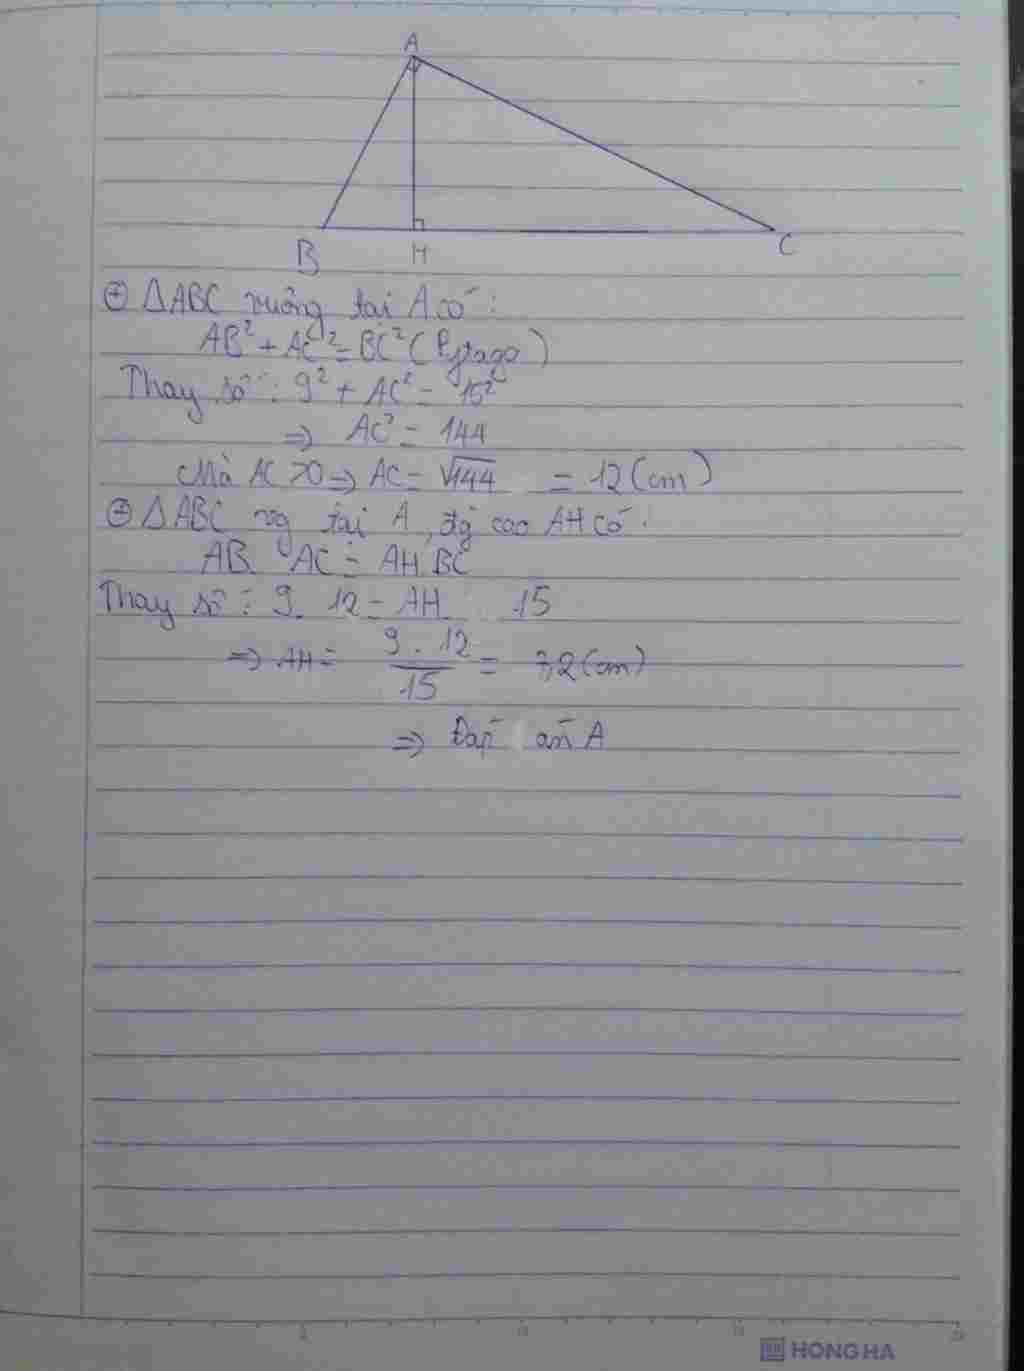 A
B H C
⊕ ΔABC vuông tại A có:
AB² + AC² = BC² (Pytago)
Thay số: 9² + AC² = 15²
⇒ AC² = 144
Mà AC > 0 ⇒ AC = √144 = 12 (cm)
⊕ ΔABC vg tại A, đg cao AH có:
AB AC = AH BC
Thay số: 9 12 = AH 15
⇒ AH = 9 . 12 / 15 = 7,2 (cm)
⇒ Đáp án A
HONG HA